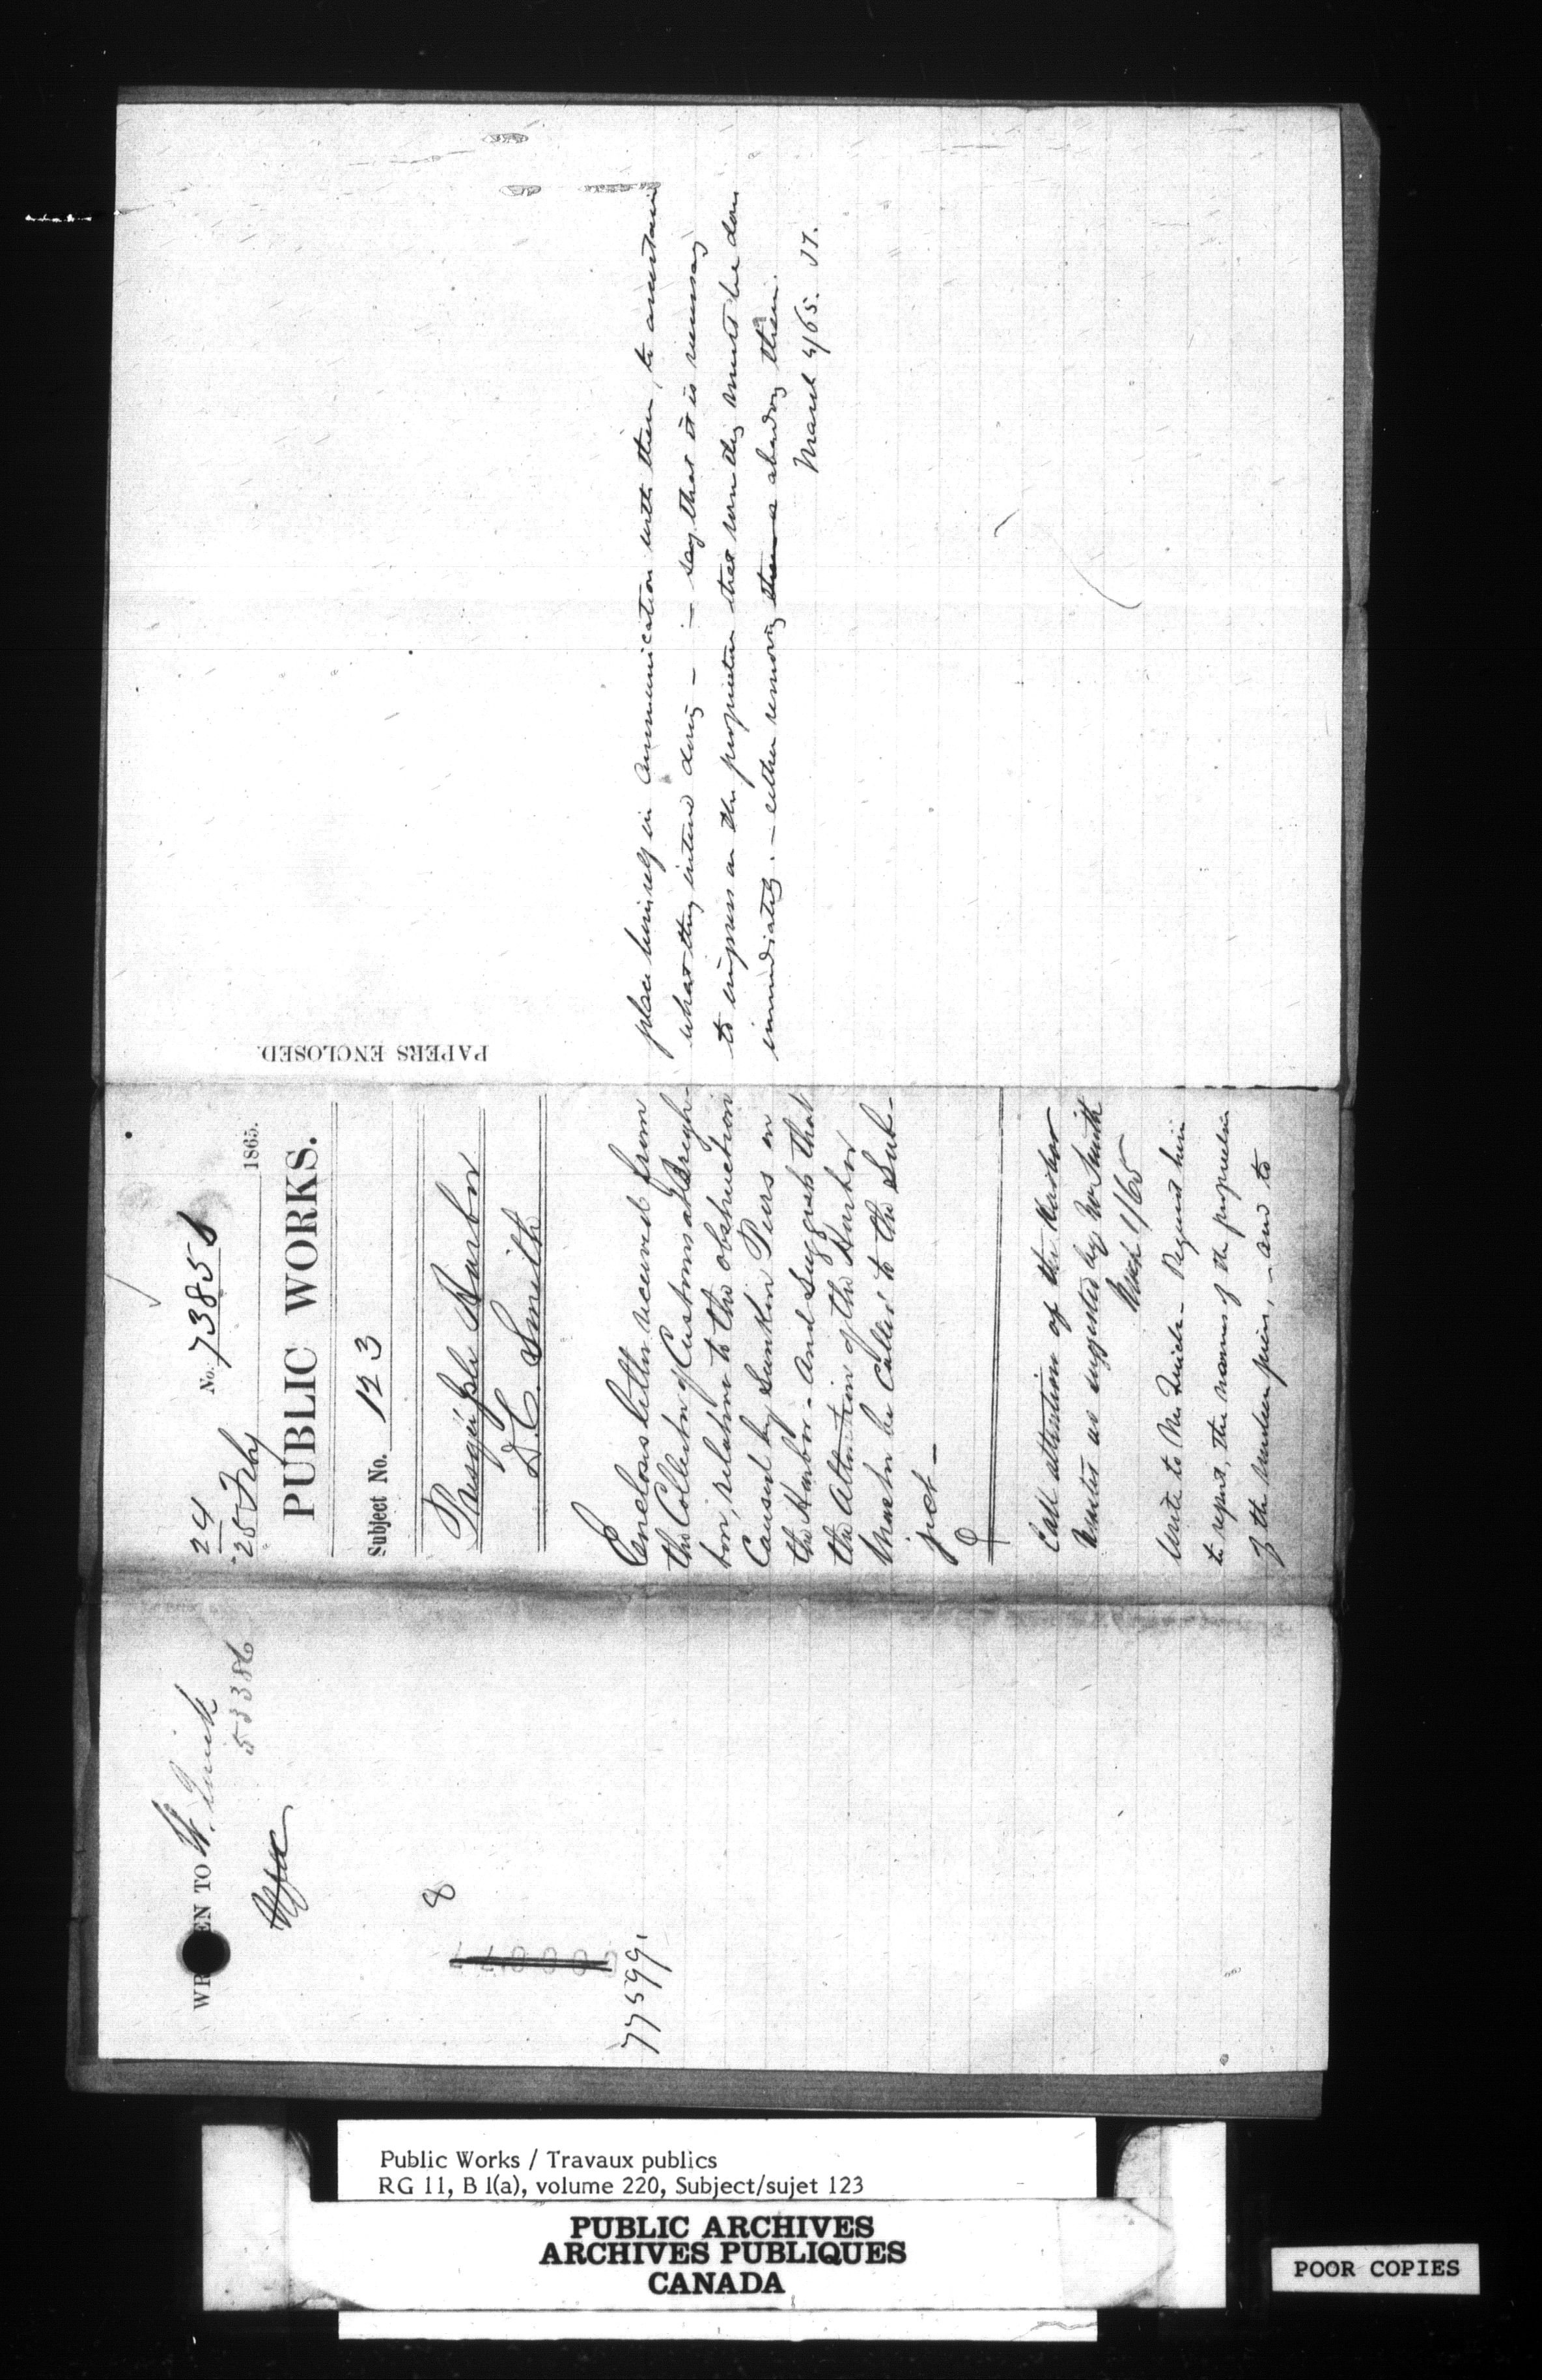 24
25 Feby
No. 73858
1865.
PUBLIC WORKS.
Subject No. 123
Presqu'Isle Harbor
D. C. Smith
Encloses letter received from
the Collector of Customs at Brigh-
ton, relative to the obstruction
caused by Sunken Piers in
the Harbor - and suggests that
the attention of the Harbor
Master be called to the Sub-
ject -
Call attention of the Harbor
Master as suggested by Mr Smith
March 1/65
Write to Mr Quick - Request him
to report, the names of the proprietors
of the sunken piers, - and to
place himself in communication with them, to ascertain
what they intend doing - - say that it is necessary
to impress on the proprietors that something must be done
immediately. - either removing them or
March 4/65. JT.
PAPERS ENCLOSED.
WR EN TO W. Quick
53386
8
77599
Public Works / Travaux publics
RG 11, B 1(a), volume 220, Subject/sujet 123
PUBLIC ARCHIVES
ARCHIVES PUBLIQUES
CANADA
POOR COPIES